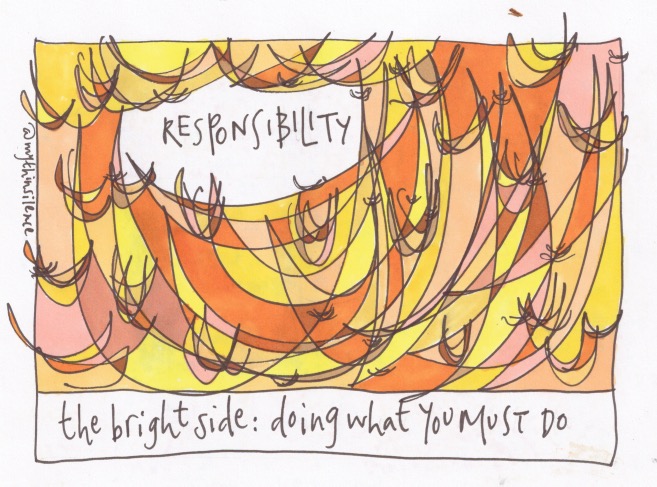 RESPONSIBILITY
@mythinsilence
the bright side: doing what YOU MUST DO